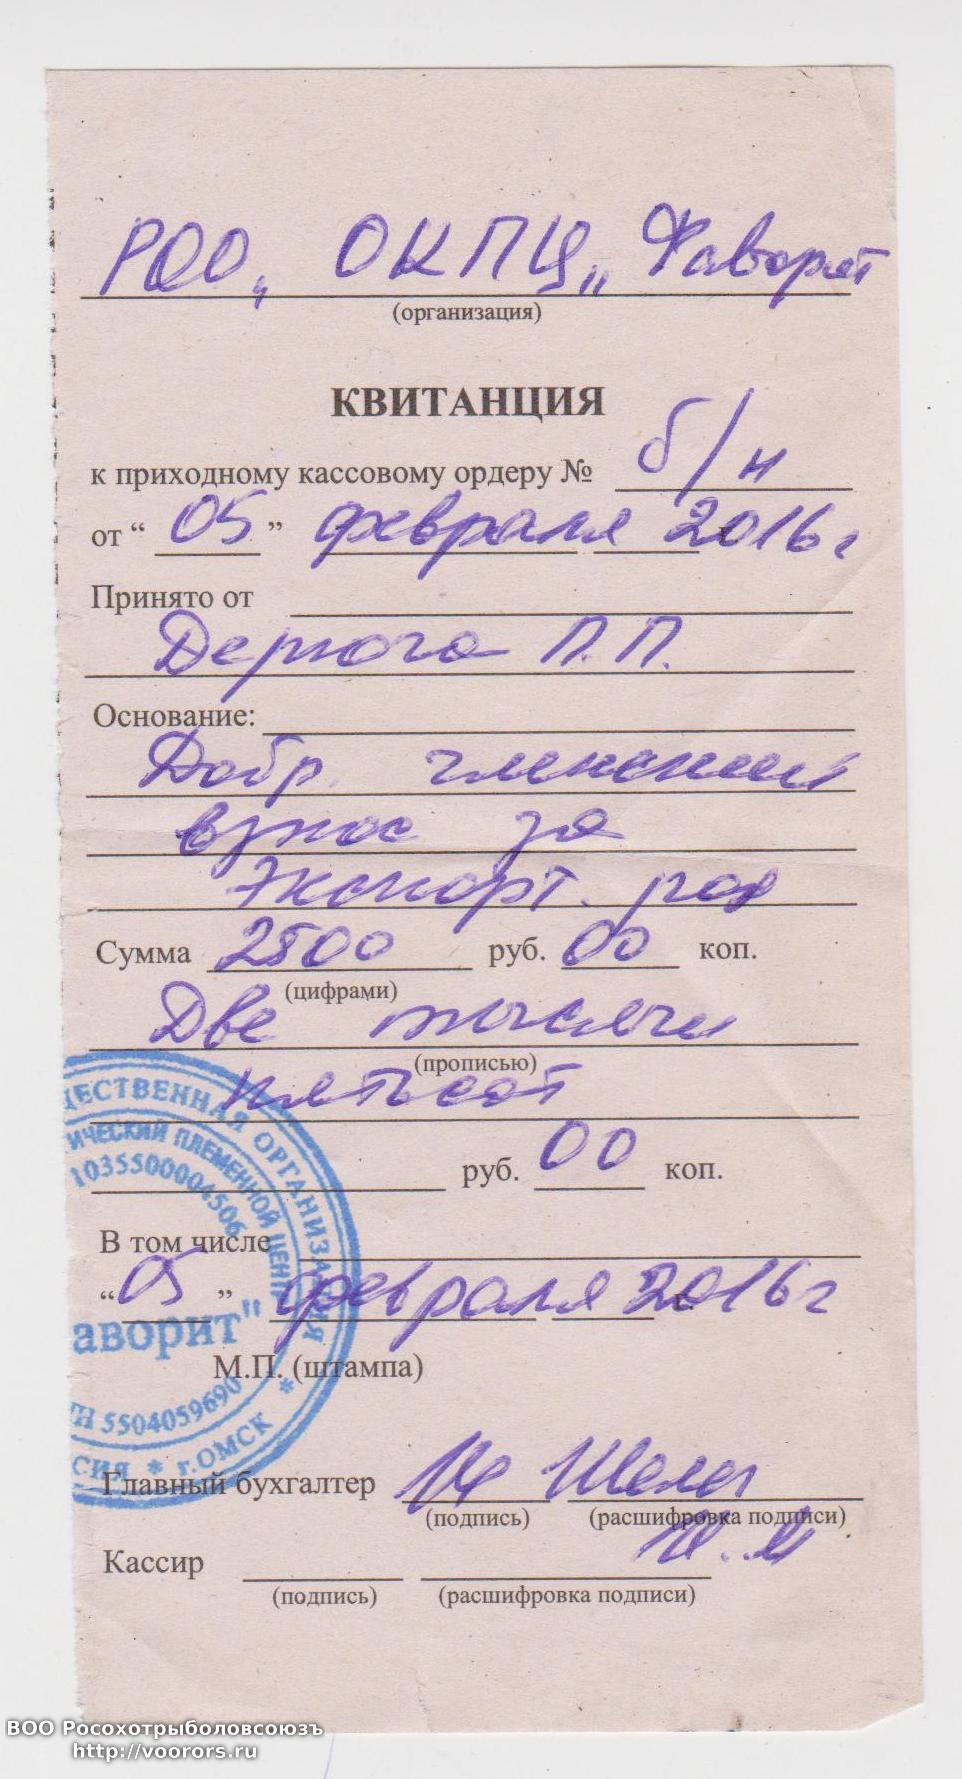 РОО „ ОКПЦ „ Фаворит
(организация)
КВИТАНЦИЯ
к приходному кассовому ордеру № б/н
от “ 05 ” февраля 2016 г
Принято от
Дерюга П.П.
Основание:
Добр. членский
взнос за
Экспорт. род
Сумма 2500 руб. 00 коп.
(цифрами)
Две тысячи
(прописью)
пятьсот
руб. 00 коп.
В том числе
“ 05 ” февраля 2016 г
М.П. (штампа)
ЩЕСТВЕННАЯ ОРГАНИЗАЦИЯ
ИЧЕСКИЙ ПЛЕМЕННОЙ ЦЕНТР
1035500004506
аворит"
НН 5504059690
СИЯ * г.ОМСК *
Главный бухгалтер
(подпись) (расшифровка подписи)
Кассир
(подпись) (расшифровка подписи)
ВОО Росохотрыболовсоюзъ
http://voorors.ru